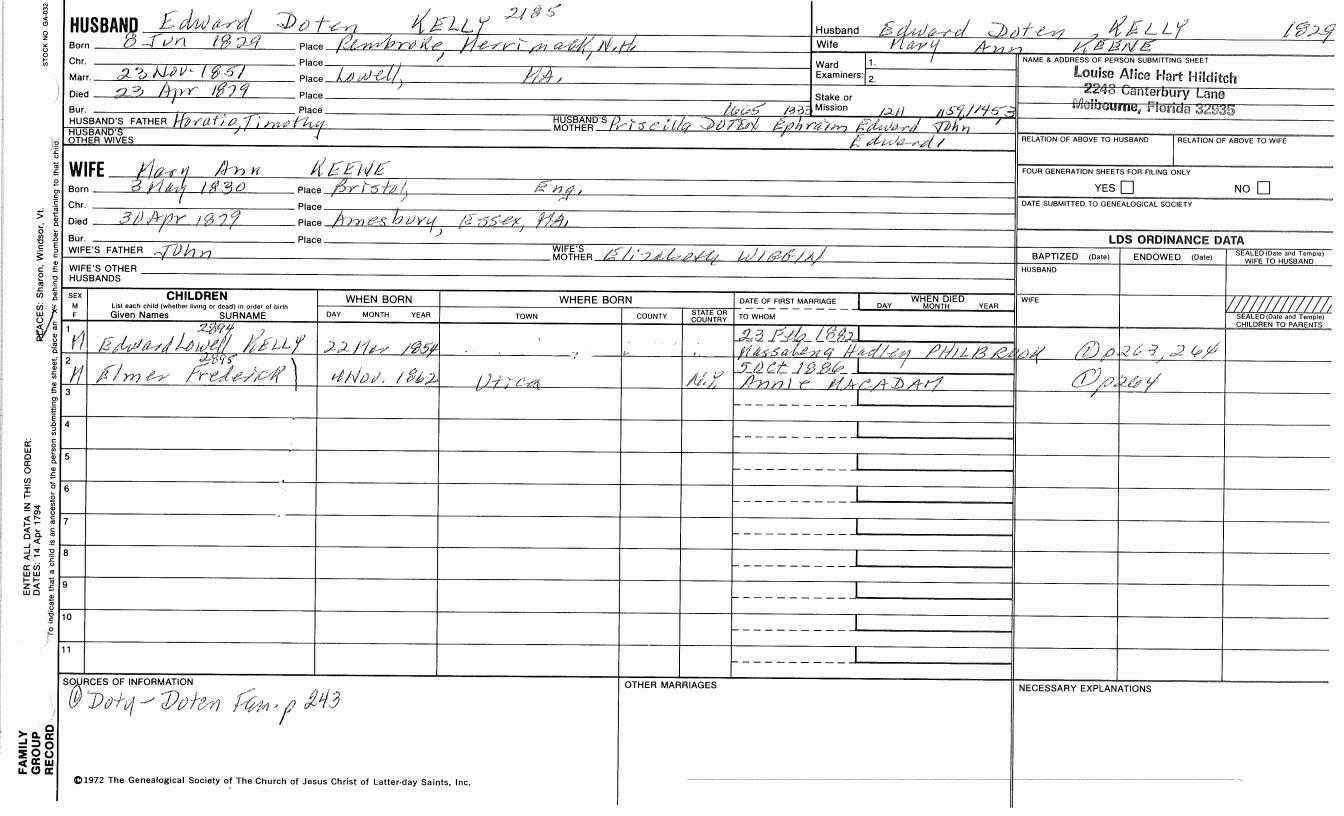 STOCK NO. GA-032
HUSBAND Edward Doten KELLY 2185
Born 8 Jun 1829 Place Pembroke, Merrimack, N.H.
Chr. Place
Marr. 23 Nov. 1851 Place Lowell, MA.
Died 23 Apr 1879 Place
Bur. Place
1665 1333 1211 1159 1145 3
HUSBAND'S FATHER Horatio, Timothy HUSBAND'S MOTHER Priscilla DOTEN Ephraim Edward John
HUSBAND'S OTHER WIVES Edward
Husband Edward Doten KELLY 1829
Wife Mary Ann KEENE
Ward Examiners: 1.
2.
Stake or Mission
NAME & ADDRESS OF PERSON SUBMITTING SHEET
Louise Alice Hart Hilditch
2248 Canterbury Lane
Melbourne, Florida 32935
RELATION OF ABOVE TO HUSBAND RELATION OF ABOVE TO WIFE
FOUR GENERATION SHEETS FOR FILING ONLY
YES NO
DATE SUBMITTED TO GENEALOGICAL SOCIETY
WIFE Mary Ann KEENE
Born 3 May 1830 Place Bristol, Eng.
Chr. Place
Died 30 Apr 1879 Place Amesbury, Essex, MA.
Bur. Place
WIFE'S FATHER John WIFE'S MOTHER Elizabeth WIGGIN
WIFE'S OTHER HUSBANDS
LDS ORDINANCE DATA
BAPTIZED (Date) ENDOWED (Date) SEALED (Date and Temple) WIFE TO HUSBAND
HUSBAND
WIFE
SEALED (Date and Temple) CHILDREN TO PARENTS
SEX M F
CHILDREN
List each child (whether living or dead) in order of birth
Given Names SURNAME
WHEN BORN
DAY MONTH YEAR
WHERE BORN
TOWN COUNTY STATE OR COUNTRY
DATE OF FIRST MARRIAGE
TO WHOM
WHEN DIED
DAY MONTH YEAR
2894 23 Feb 1882
1 M Edward Lowell KELLY 22 Mar 1854 Massabeng Hadley PHILBROOK ① p263, 264
2895 5 Oct 1886
2 M Elmer Frederick 4 Nov. 1862 Utica N.Y. Annie MACADAM ① p264
3
4
5
6
7
8
9
10
11
SOURCES OF INFORMATION
① Doty - Doten Fam. p 243
OTHER MARRIAGES
NECESSARY EXPLANATIONS
©1972 The Genealogical Society of The Church of Jesus Christ of Latter-day Saints, Inc.
FAMILY GROUP RECORD
ENTER ALL DATA IN THIS ORDER:
DATES: 14 Apr 1794
PLACES: Sharon, Windsor, Vt.
To indicate that a child is an ancestor of the person submitting the sheet, place an X behind the number pertaining to that child.